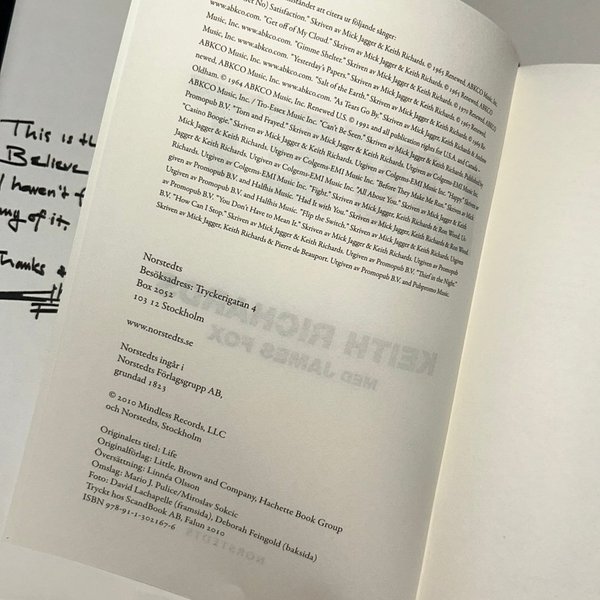 This is th
Believe
I haven't f
ny of it.
Thanks &
ståndet att citera ur följande sånger:
et No) Satisfaction." Skriven av Mick Jagger & Keith Richards. © 1965 Renewed, ABKCO Music, Inc.
www.abkco.com. "Get off of My Cloud." Skriven av Mick Jagger & Keith Richards. © 1965 Renewed, ABKCO
Music, Inc. www.abkco.com. "Gimme Shelter." Skriven av Mick Jagger & Keith Richards. © 1970 Renewed,
ABKCO Music, Inc. www.abkco.com. "Yesterday's Papers." Skriven av Mick Jagger & Keith Richards. © 1967 Renewed,
ABKCO Music, Inc. www.abkco.com. "Salt of the Earth." Skriven av Mick Jagger & Keith Richards. © 1969 Re-
newed, ABKCO Music, Inc. www.abkco.com. "As Tears Go By." Skriven av Mick Jagger, Keith Richards & Andrew
Oldham. © 1964 ABKCO Music, Inc. Renewed U.S. © 1992 and all publication rights for U.S.A. and Canada –
ABKCO Music, Inc. / Tro-Essex Music Inc. "Can't Be Seen." Skriven av Mick Jagger & Keith Richards. Published by
Promopub B.V. "Torn and Frayed." Skriven av Mick Jagger & Keith Richards. Utgiven av Colgems-EMI Music Inc.
"Casino Boogie." Skriven av Mick Jagger & Keith Richards. Utgiven av Colgems-EMI Music Inc. "Happy." Skriven av
Mick Jagger & Keith Richards. Utgiven av Colgems-EMI Music Inc. "Before They Make Me Run." Skriven av Mick
Jagger & Keith Richards. Utgiven av Colgems-EMI Music Inc. "All About You." Skriven av Mick Jagger & Keith
Richards. Utgiven av Colgems-EMI Music Inc. "Fight." Skriven av Mick Jagger, Keith Richards & Ron Wood. Ut-
given av Promopub B.V. and Halfhis Music. "Had It with You." Skriven av Mick Jagger, Keith Richards & Ron Wood.
Utgiven av Promopub B.V. and Halfhis Music. "Flip the Switch." Skriven av Mick Jagger & Keith Richards. Utgiven
av Promopub B.V. "You Don't Have to Mean It." Skriven av Mick Jagger & Keith Richards. Utgiven av Promopub
B.V. "How Can I Stop." Skriven av Mick Jagger & Keith Richards. Utgiven av Promopub B.V. "Thief in the Night."
Skriven av Mick Jagger, Keith Richards & Pierre de Beauport. Utgiven av Promopub B.V. and Pubpromo Music.
Norstedts
Besöksadress: Tryckerigatan 4
Box 2052
103 12 Stockholm
www.norstedts.se
KEITH RICHARDS
MED JAMES FOX
Norstedts ingår i
Norstedts Förlagsgrupp AB,
grundad 1823
© 2010 Mindless Records, LLC
och Norstedts, Stockholm
Originalets titel: Life
Originalförlag: Little, Brown and Company, Hachette Book Group
Översättning: Linnéa Olsson
Omslag: Mario J. Pulice/Miroslav Sokcic
Foto: David Lachapelle (framsida), Deborah Feingold (baksida)
Tryckt hos ScandBook AB, Falun 2010
ISBN 978-91-1-302167-6
NORSTEDTS